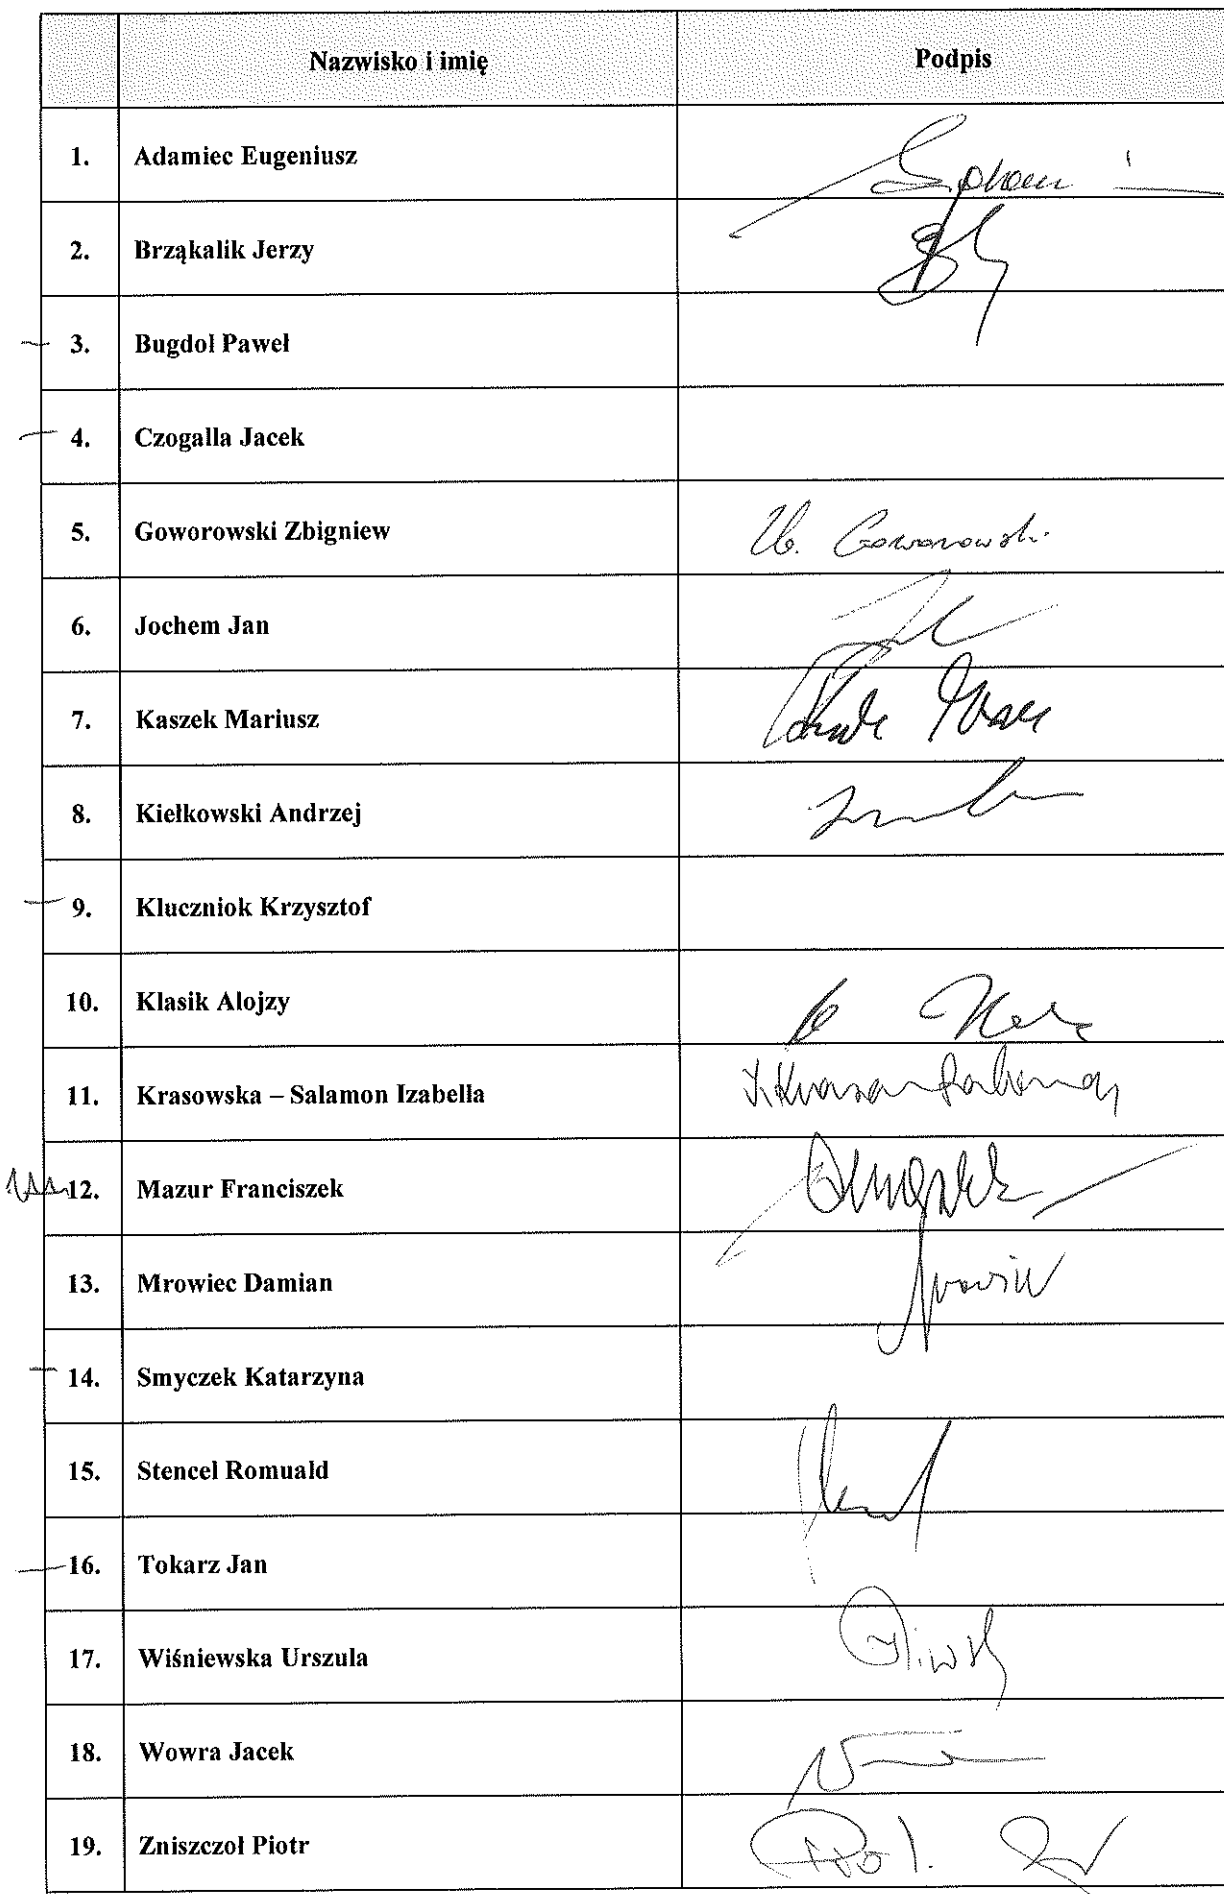 Nazwisko i imię Podpis
1. Adamiec Eugeniusz
2. Brząkalik Jerzy
3. Bugdol Paweł
4. Czogalla Jacek
5. Goworowski Zbigniew Zb. Goworowski
6. Jochem Jan
7. Kaszek Mariusz
8. Kiełkowski Andrzej
9. Kluczniok Krzysztof
10. Klasik Alojzy
11. Krasowska – Salamon Izabella
12. Mazur Franciszek
13. Mrowiec Damian
14. Smyczek Katarzyna
15. Stencel Romuald
16. Tokarz Jan
17. Wiśniewska Urszula
18. Wowra Jacek
19. Zniszczoł Piotr